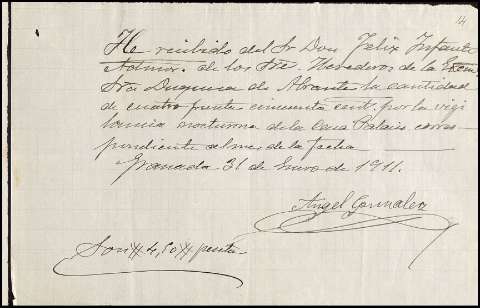 14
He recibido del Sr Don Felix Infante
Admor. de los Sre Herederos de la Excma
Sra Duquesa de Abrante la cantidad
de cuatro peseta cincuenta cent. por la vigi
lancia nocturna de la Casa Palacio corres-
pondiente al mes de la fecha
Granada 31 de Enero de 1911.
Angel Gonzalez
Son # 4,50 # peseta